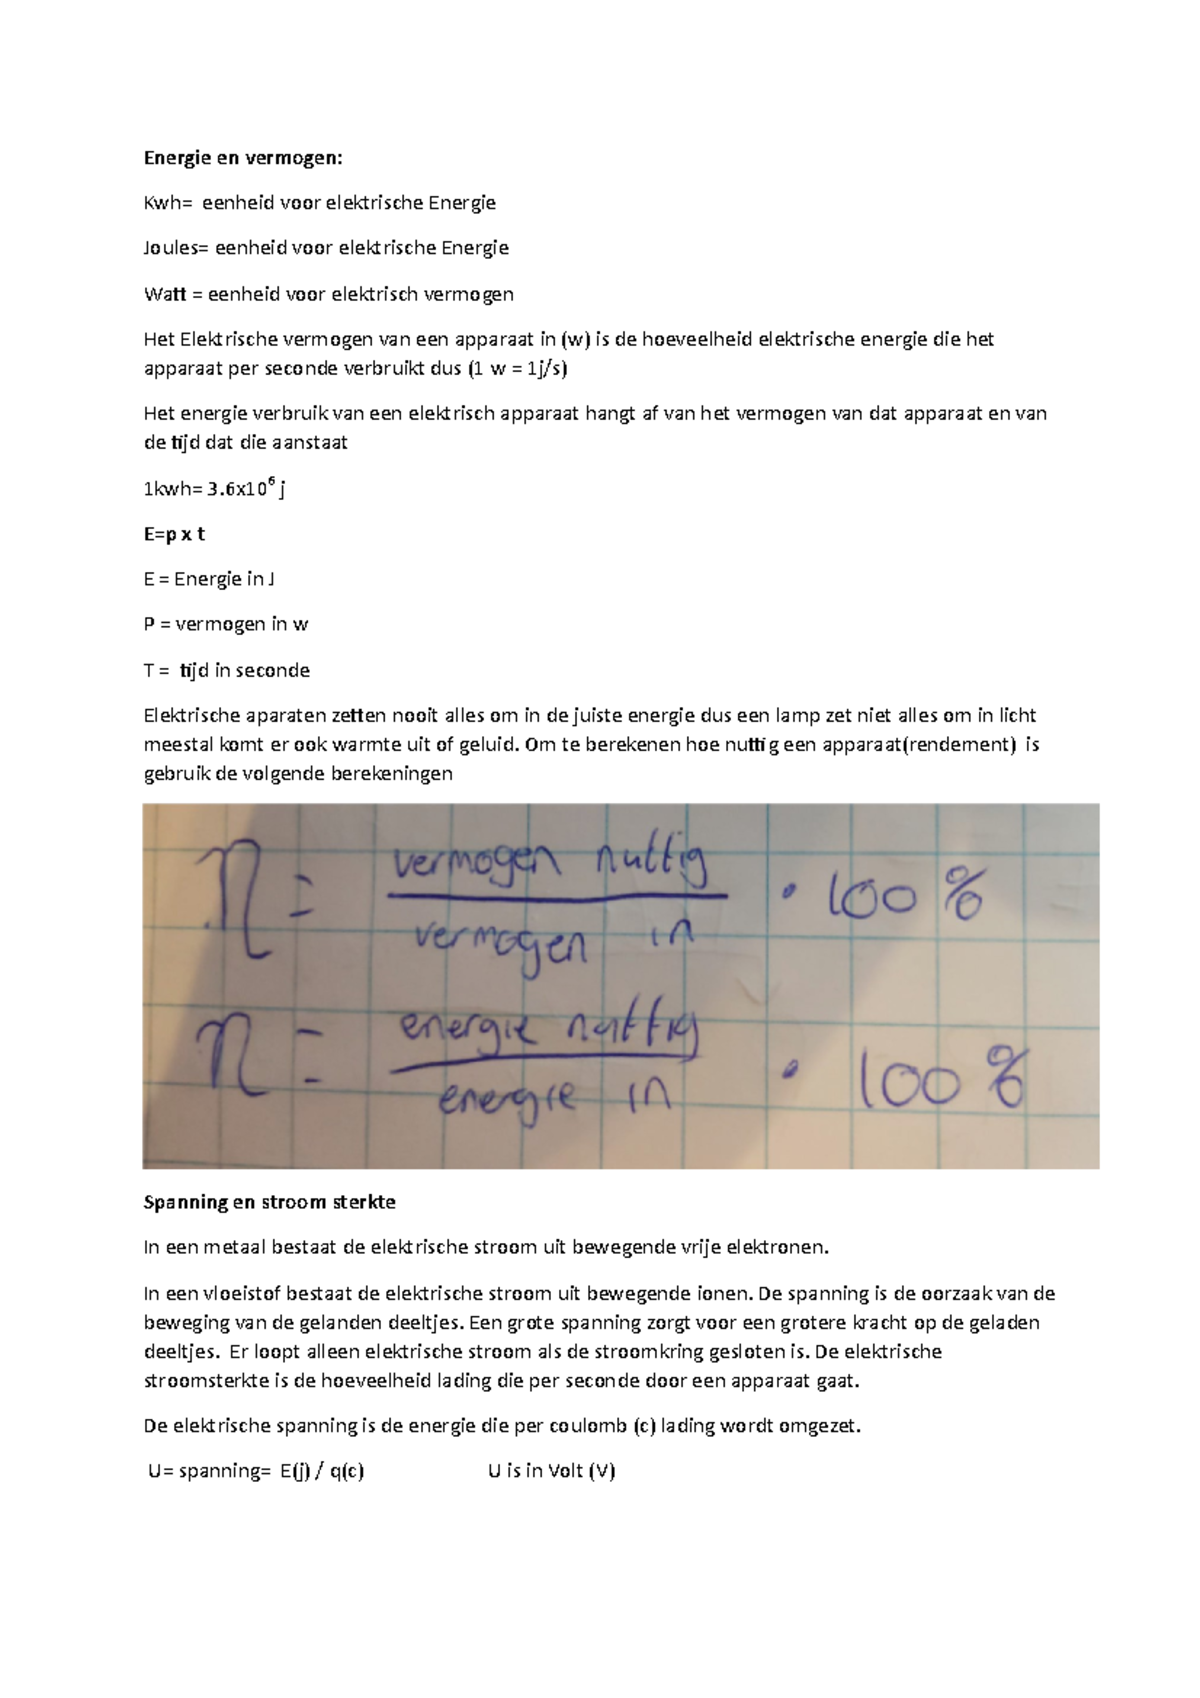 Energie en vermogen:
Kwh=  eenheid voor elektrische Energie
Joules= eenheid voor elektrische Energie
Watt = eenheid voor elektrisch vermogen
Het Elektrische vermogen van een apparaat in (w) is de hoeveelheid elektrische energie die het
apparaat per seconde verbruikt dus (1 w = 1j/s)
Het energie verbruik van een elektrisch apparaat hangt af van het vermogen van dat apparaat en van
de tijd dat die aanstaat
1kwh= 3.6x10⁶ j
E=p x t
E = Energie in J
P = vermogen in w
T =  tijd in seconde
Elektrische aparaten zetten nooit alles om in de juiste energie dus een lamp zet niet alles om in licht
meestal komt er ook warmte uit of geluid. Om te berekenen hoe nuttig een apparaat(rendement)  is
gebruik de volgende berekeningen
η = vermogen nuttig / vermogen in · 100 %
η = energie nuttig / energie in · 100 %
Spanning en stroom sterkte
In een metaal bestaat de elektrische stroom uit bewegende vrije elektronen.
In een vloeistof bestaat de elektrische stroom uit bewegende ionen. De spanning is de oorzaak van de
beweging van de gelanden deeltjes. Een grote spanning zorgt voor een grotere kracht op de geladen
deeltjes.  Er loopt alleen elektrische stroom als de stroomkring gesloten is. De elektrische
stroomsterkte is de hoeveelheid lading die per seconde door een apparaat gaat.
De elektrische spanning is de energie die per coulomb (c) lading wordt omgezet.
U= spanning=  E(j) / q(c) U is in Volt (V)